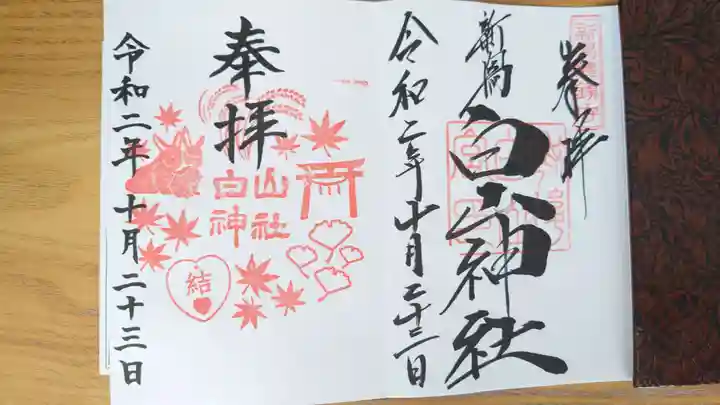 奉拝
新潟
白山神社
令和二年十月二十三日
奉拝
白山
神社
結
令和二年十月二十三日